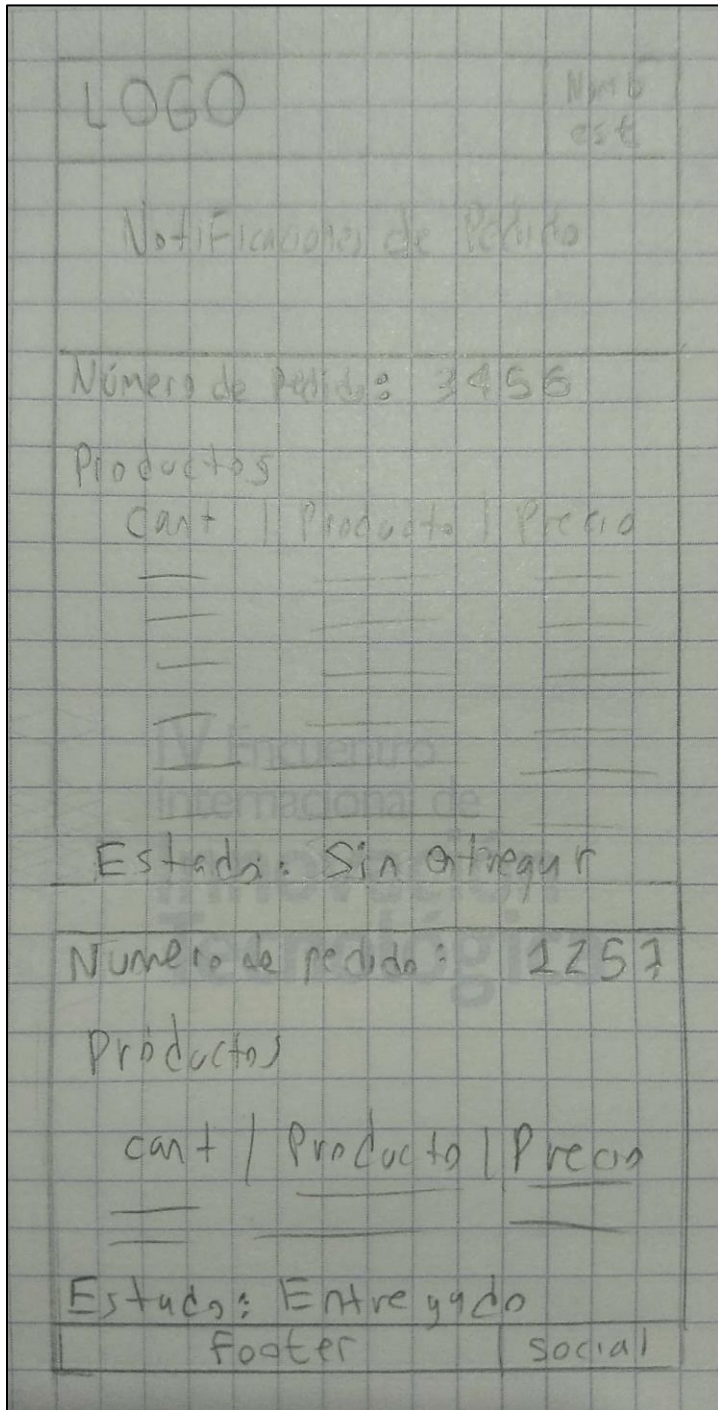 LOGO
Nomb
est
Notificaciones de Pedido
Número de pedido: 3456
Productos
Cant | Producto | Precio
IV Encuentro
Internacional de
Innovación
Tecnológi
Estado: Sin entregar
Numero de pedido: 1257
Productos
cant | Producto | Precio
Estado: Entregado
Footer
social